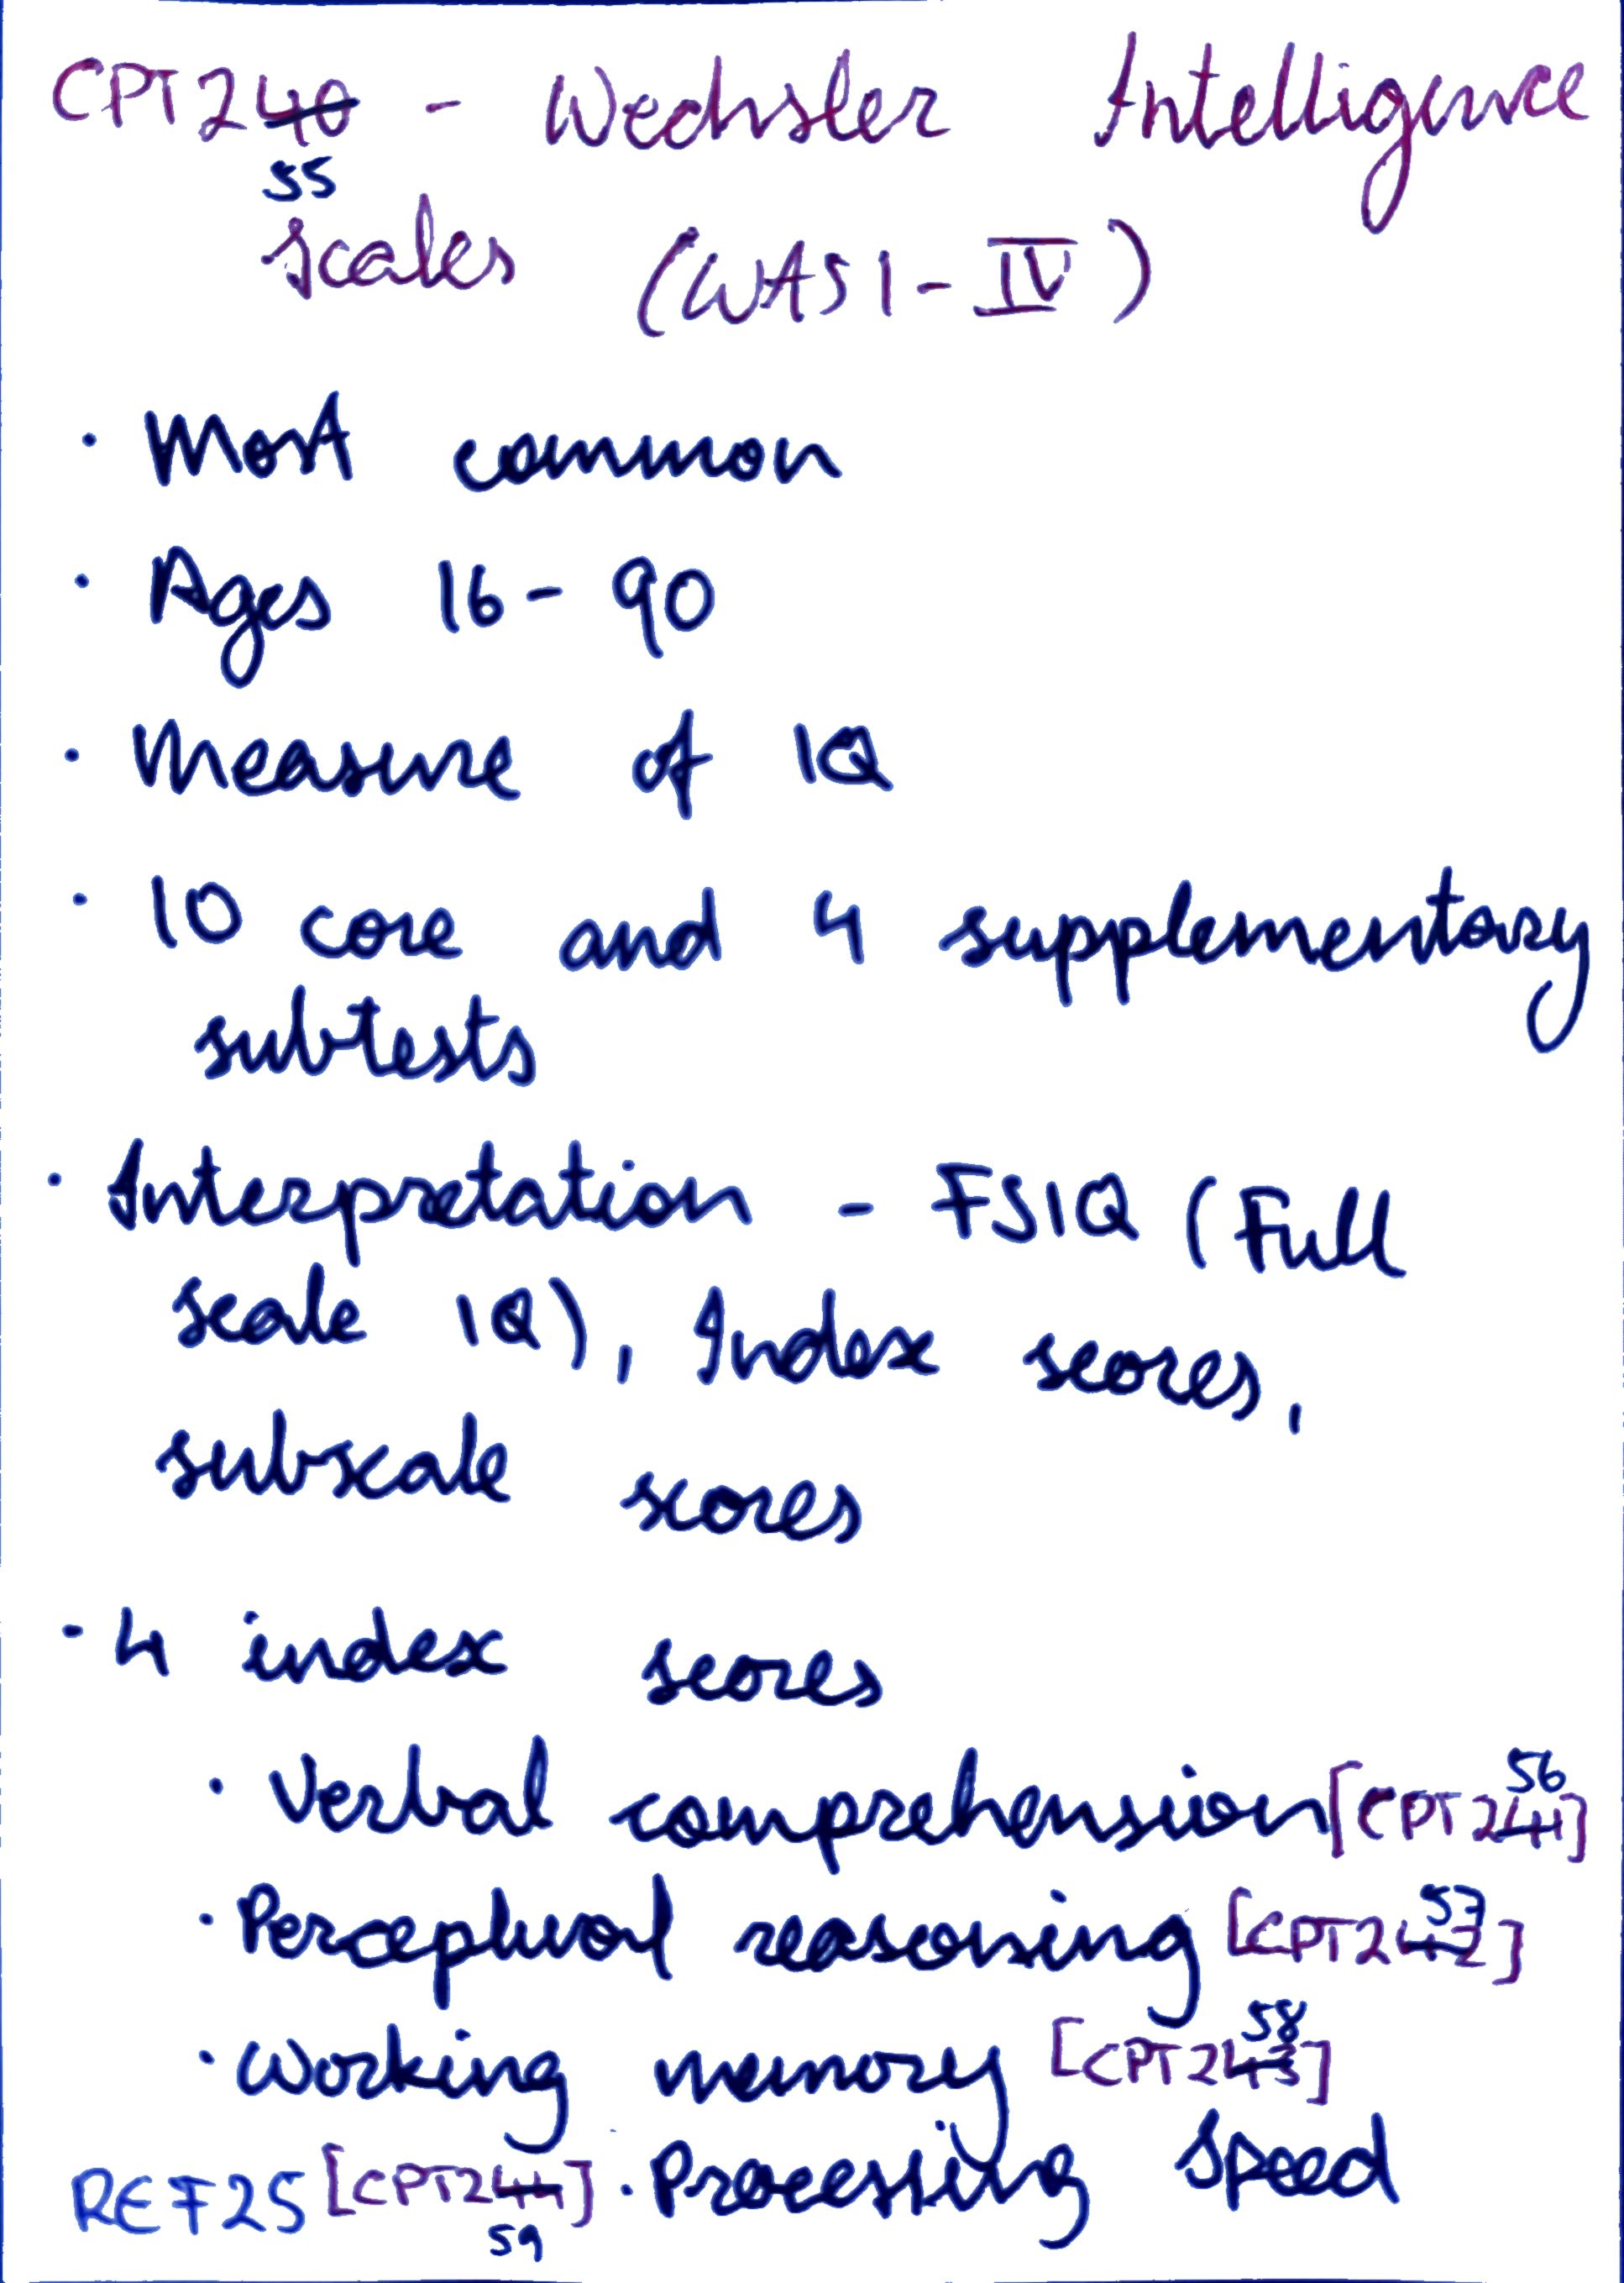 CPT240 - Wechsler Intelligence
55
scales (WASI-IV)
· Most common
· Ages 16-90
· Measure of IQ
· 10 core and 4 supplementary
subtests
· Interpretation - FSIQ (Full
scale IQ), Index scores,
subscale scores
- 4 index scores
56
· Verbal comprehension [CPT241]
57
· Perceptual reasoning [CPT242]
58
· Working memory [CPT243]
REF25 [CPT244] · Processing speed
59